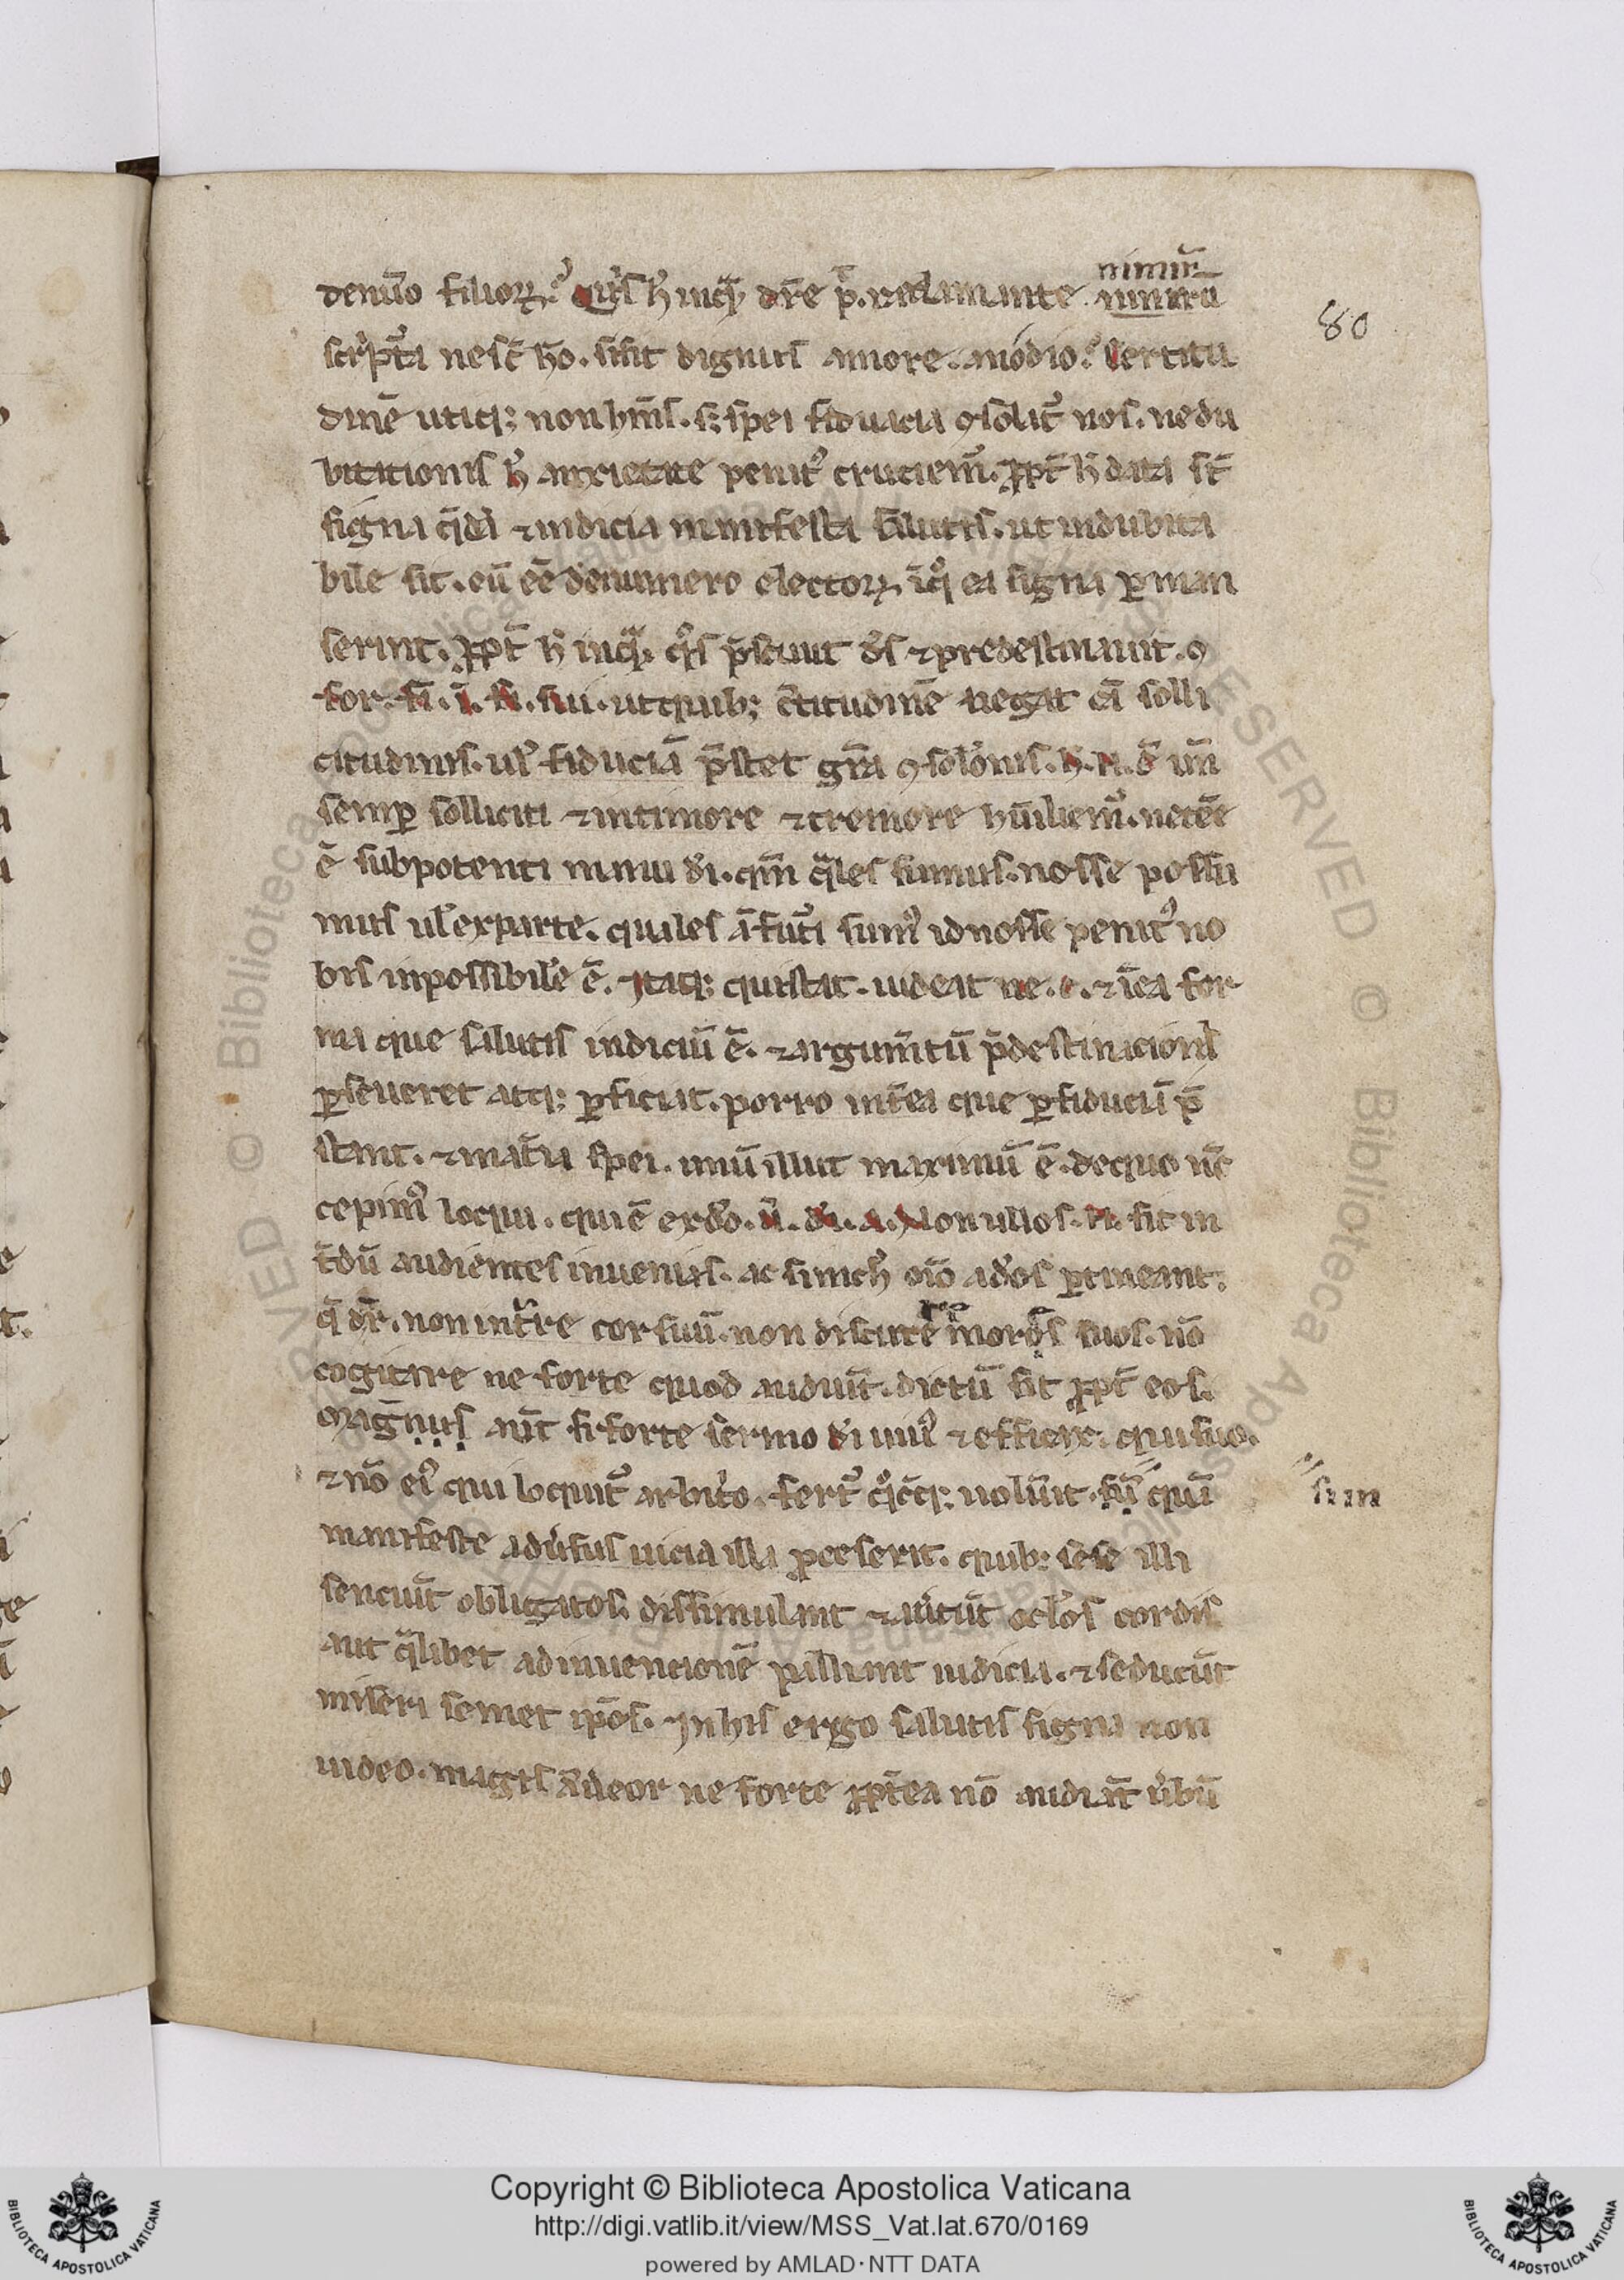 nimiru̅
denu͛o filioꝝ. Quis h̾ inqͣ dr̅e p̅. reclamante nimiru̅
scͥpt̾a nesc̅ ho̅. si sit dignus amore. an odio. Certitu
dine̅ utiqꝫ non hm̅s. sꝫ spei fiducia ꝯsolat᷑ nos. ne du
bitationis h᷑ anxietate penit᷒ cruciem᷒. ꝓpt̅ h̾ data st̅
signa q̅da̅ ⁊ indicia manifesta salutis. ut indubita
bile sit. eu̅ ee̅ de numero electoꝝ. i̅ qͦ ea signa ꝑman
serint. ꝓpt̅ h̾ inqͣ. qͦs p̅sciuit ds̅ ⁊ predestinauit. ꝯ
for. fi̅. i̅. fi. sui. ut quibꝫ c̅titudine̅ negat ca̅ solli
citudinis. ul̾ fiducia̅ p̅stet gr̅a ꝯsolo̅nis. h̾. n̅. d̅ um̅
semꝑ solliciti ⁊ in timore ⁊ tremore hu̅iliem᷒. necee̅
e̅ sub potenti manu di̅. qm̅ qͣles sumus. nosse possu
mus ul̾ ex parte. quales a̅ fut̾i sum᷒ id nosse penit᷒ no
bis inpossibile e̅. Itaqꝫ qui stat. uideat ne. c. ⁊ i̅ ea for
ma que salutis indiciu̅ e̅. ⁊ argum̅tu̅ p̅destinacionis
ꝑseueret atqꝫ ꝑficiat. porro int̅ ea que ꝑ fiducia̅ p̅
stant. ⁊ mat̅ia spei. unu̅ illut maximu̅ e̅. de quo nc̅
cepim᷒ loqui. qui e̅ ex do̅. u̅. di̅. a. Nonullos. n̅. sic in
t̅du̅ audientes inuenias. ac si nich̾ oi̅o ad eos ꝑtineant.
q̅ dr̅. non int̅re cor suu̅. non discute̅ mores suos. no̅
cogitare ne forte quod audiu̅t. dictu̅ sit ꝓpt̅ eos.
magnus aut̅ si forte sermo di̅ uiu᷒ ⁊ efficax. qui suo.
⁊ no̅ ei᷒ qui loquit᷑ arbit̾o. fert᷑ qͦcu̅qꝫ uolu̅it. su̅ qua̅
sun
manifeste adu̾sus uicia illa ꝓcesserit. quibꝫ sese illi
senciu̅t obligatos. dissimulant ⁊ au̾tu̅t oclo̾s cordis
aut qͣlibet adinuencione̅ palliant iudicia. ⁊ seducu̅t
miseri semet ip̅os. In his ergo salutis signa non
uideo. magis u̾eor ne forte ꝓpt̅ea no̅ audiant u̾bu̅
80
Copyright © Biblioteca Apostolica Vaticana
http://digi.vatlib.it/view/MSS_Vat.lat.670/0169
powered by AMLAD·NTT DATA